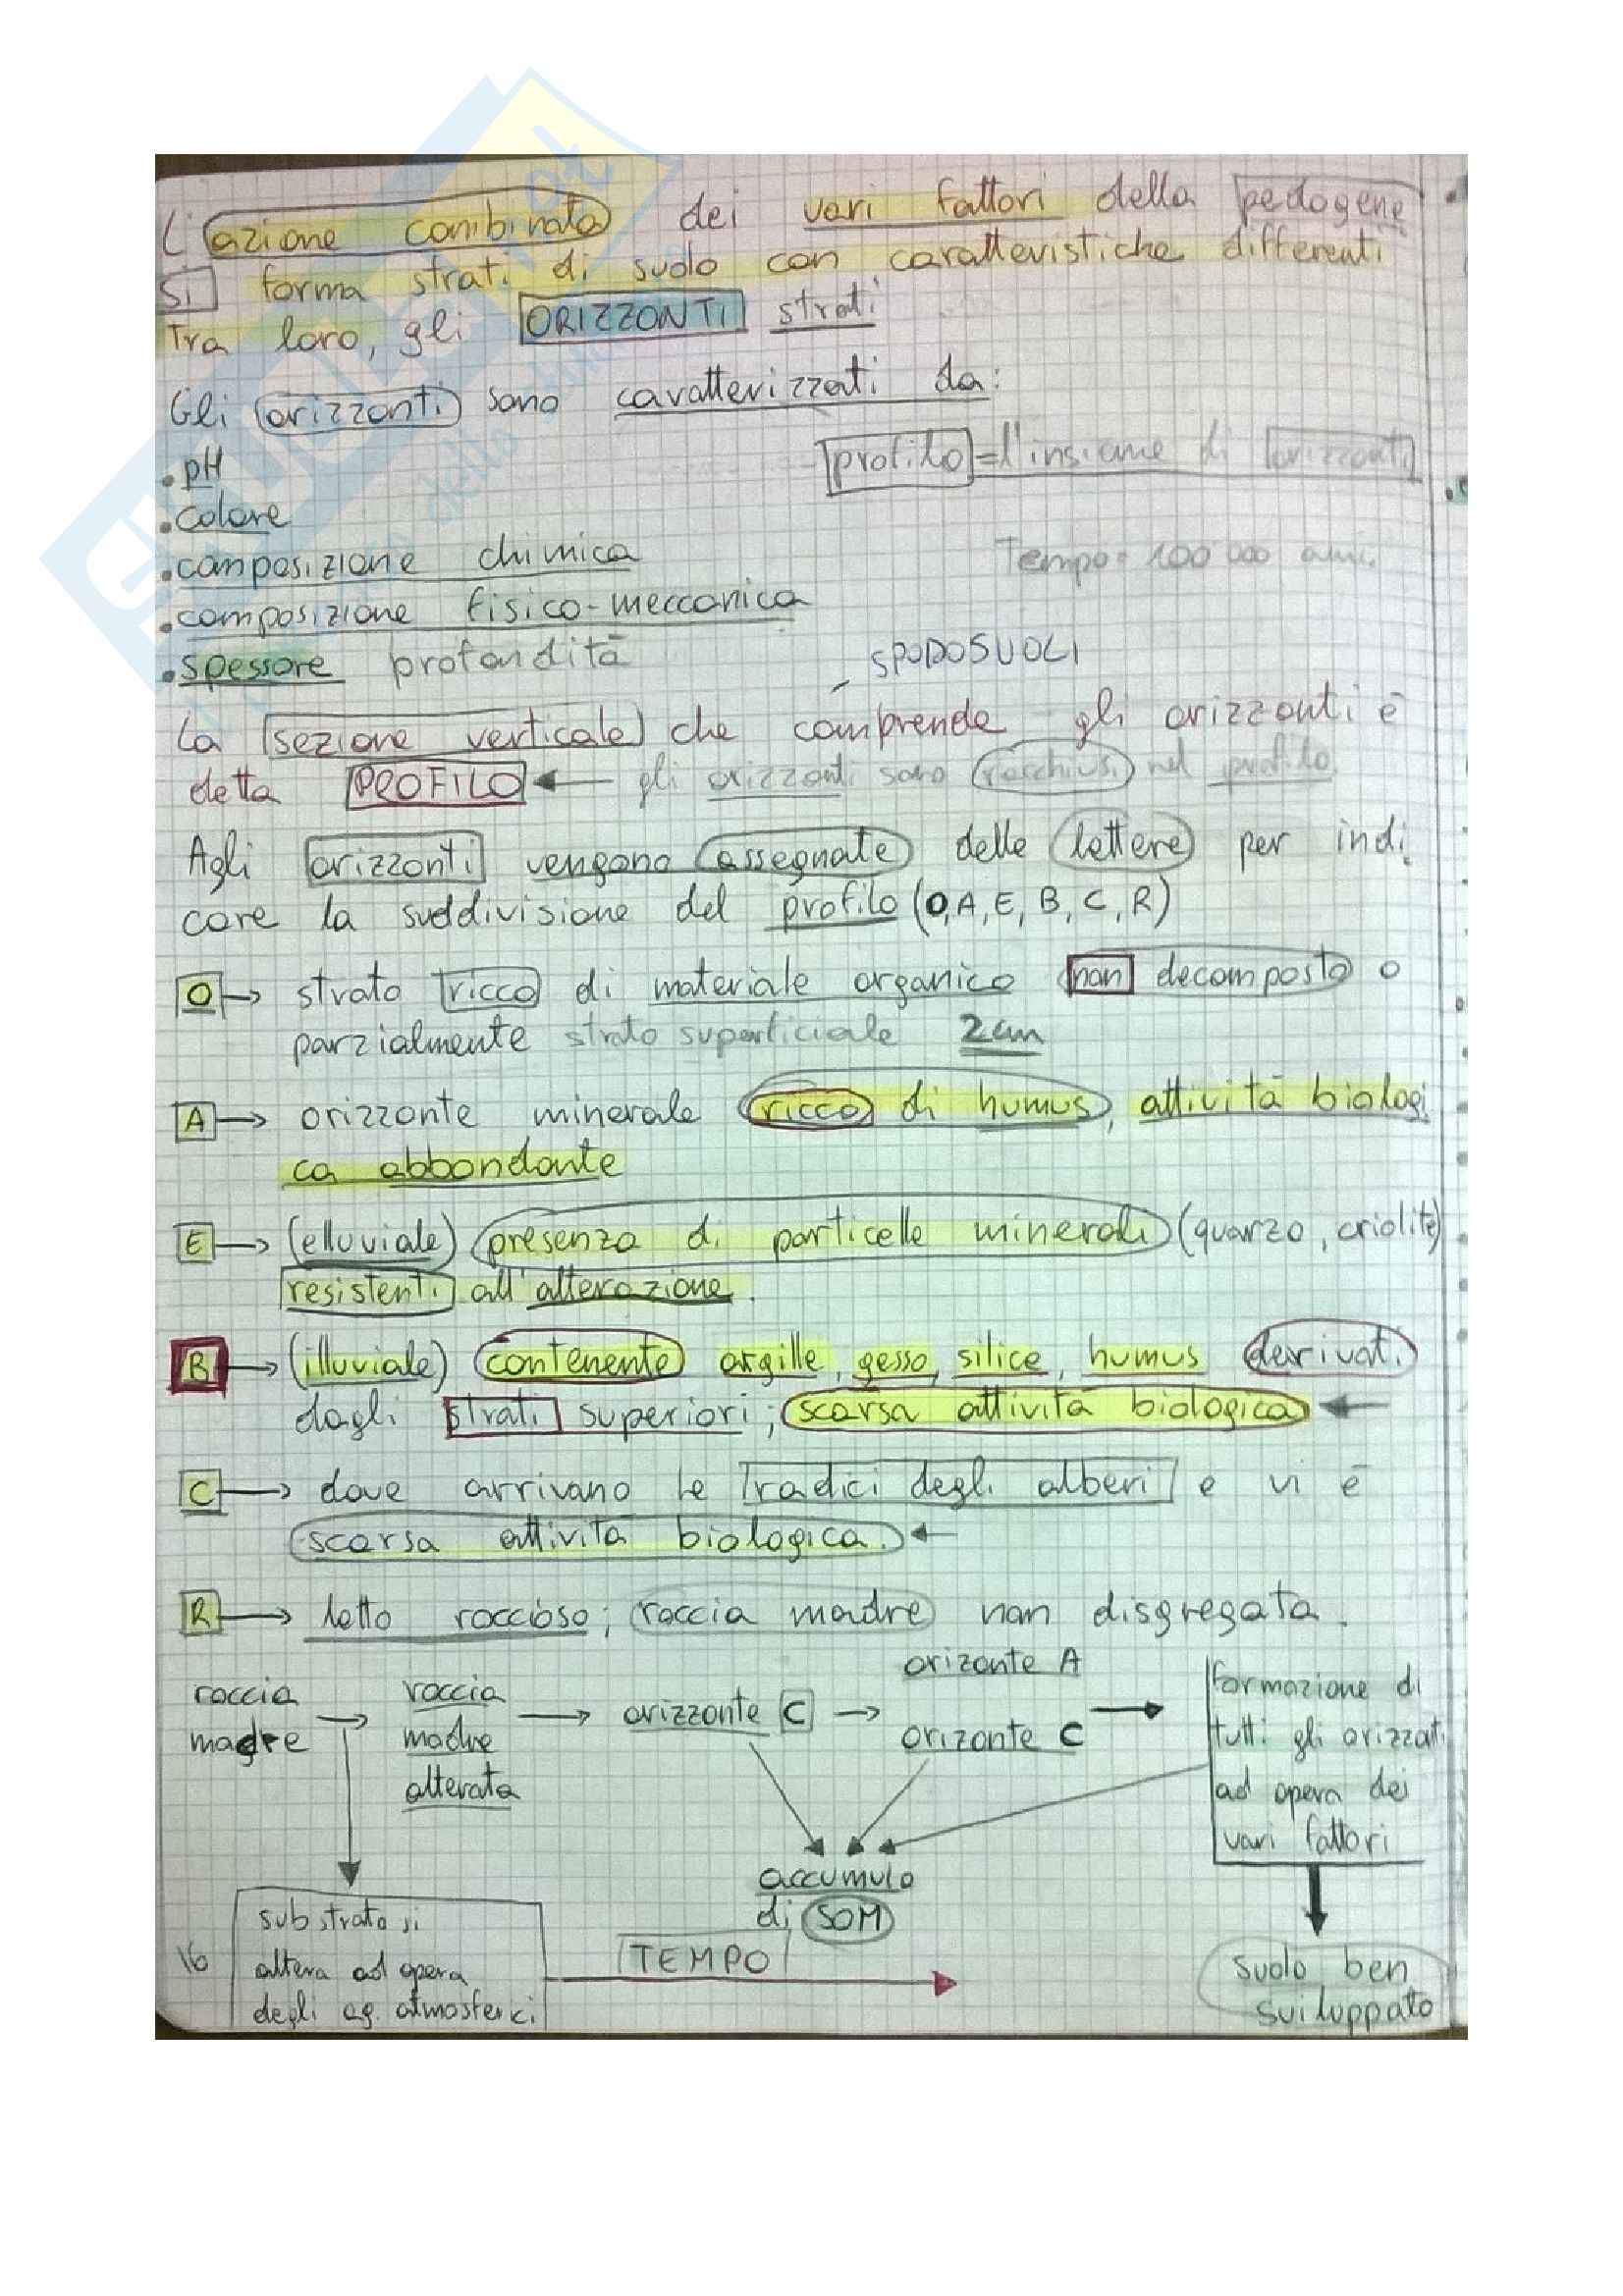 L'azione combinata dei vari fattori della pedogene
si forma strati di suolo con caratteristiche differenti
Tra loro, gli ORIZZONTI strati
Gli orizzonti sono caratterizzati da:
• pH
profilo = l'insieme di orizzonti
• colore
• composizione chimica
Tempo = 100 000 anni.
• composizione fisico-meccanica
• spessore profondità
SPODOSUOLI
La sezione verticale che comprende gli orizzonti è
detta PROFILO ← gli orizzonti sono racchiusi nel profilo.
Agli orizzonti vengono assegnate delle lettere per indi
care la suddivisione del profilo (O, A, E, B, C, R)
O → strato ricco di materiale organico non decomposto o
parzialmente strato superficiale 2 cm
A → orizzonte minerale ricco di humus, attività biologi
ca abbondante
E → (elluviale) presenza di particelle minerali (quarzo, criolite)
resistenti all'alterazione.
B → (illuviale) contenente argille, gesso, silice, humus derivati
dagli strati superiori; scarsa attività biologica ←
C → dove arrivano le radici degli alberi e vi è
scarsa attività biologica. ←
R → letto roccioso; roccia madre non disgregata.
roccia madre → roccia madre alterata → orizzonte C → orizonte A
orizonte C → formazione di
tutti gli orizzati
ad opera dei
vari fattori
accumulo
di SOM
substrato si
altera ad opera
degli ag. atmosferici
TEMPO
suolo ben
sviluppato
16